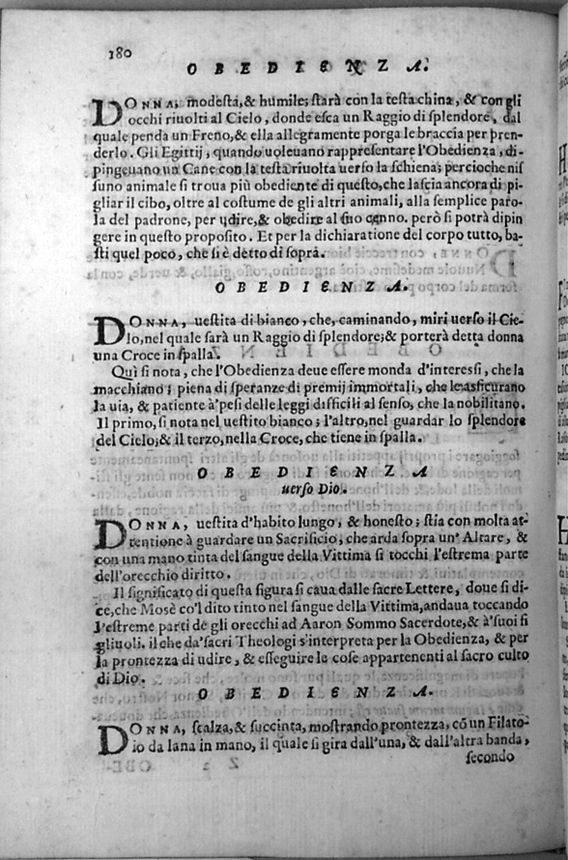 180
OBEDIENZA.
DONNA, modesta, & humile; starà con la testa china, & con gli
occhi riuolti al Cielo, donde esca un Raggio di splendore, dal
quale penda un Freno, & ella allegramente porga le braccia per pren-
derlo. Gli Egittij, quando uoleuano rappresentare l'Obedienza, di-
pingeuano un Cane con la testa riuolta uerso la schiena; percioche nis
suno animale si troua più obediente di questo, che lascia ancora di pi-
gliar il cibo, oltre al costume de gli altri animali, alla semplice paro-
la del padrone, per udire, & obedire al suo cenno. però si potrà dipin
gere in questo proposito. Et per la dichiaratione del corpo tutto, ba-
sti quel poco, che si è detto di sopra.
OBEDIENZA.
DONNA, uestita di bianco, che, caminando, miri uerso il Cie-
lo, nel quale sarà un Raggio di splendore; & porterà detta donna
una Croce in spalla.
Quì si nota, che l'Obedienza deue essere monda d'interessi, che la
macchiano; piena di speranze di premij immortali, che le asficurano
la uia, & patiente à'pesi delle leggi difficili al senso, che la nobilitano.
Il primo, si nota nel uestito bianco; l'altro, nel guardar lo splendore
del Cielo; & il terzo, nella Croce, che tiene in spalla.
OBEDIENZA
uerso Dio.
DONNA, uestita d'habito lungo, & honesto; stia con molta at-
tentione à guardare un Sacrificio, che arda sopra un' Altare, &
con una mano tinta del sangue della Vittima si tocchi l'estrema parte
dell'orecchio diritto.
Il significato di questa figura si caua dalle sacre Lettere, doue si di-
ce, che Mosè co'l dito tinto nel sangue della Vittima, andaua toccando
l'estreme parti de gli orecchi ad Aaron Sommo Sacerdote, & à'suoi fi
gliuoli. il che da'sacri Theologi s'interpreta per la Obedienza, & per
la prontezza di udire, & esseguire le cose appartenenti al sacro culto
di Dio.
OBEDIENZA.
DONNA, scalza, & succinta, mostrando prontezza, cõ un Filato-
io da lana in mano, il quale si gira dall'una, & dall'altra banda,
secondo